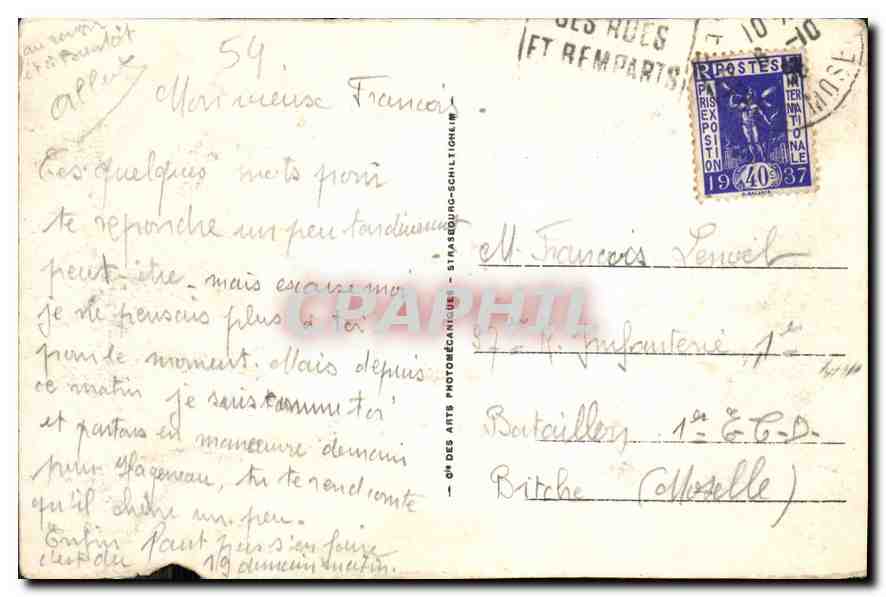 au revoir
et à Bientôt
Albert
54
Mon vieux Francois.
Ces quelques mots pour
te reponche un peu tardivement
peut-être. mais excuse moi
je ne pensais plus à toi
pour le moment. Mais depuis
ce matin je suis comme toi
et partons en manœuvre demain
pour Hagenau, tu te rend conte
qu'il chène un peu.
Enfin Faut pas s'en faire
c'est du 19 demain matin.
Cie DES ARTS PHOTOMÉCANIQUES - STRASBOURG-SCHILTIGHEIM
SES RUES
ET REMPARTS
10
RF POSTES
PARIS EXPOSITION
INTERNATIONALE
1937
40c
M. Francois Lenoel
37e R. Infanterie, 1er
Bataillon 1er E-C-D-
Bitche (Moselle)
CPAPHIL